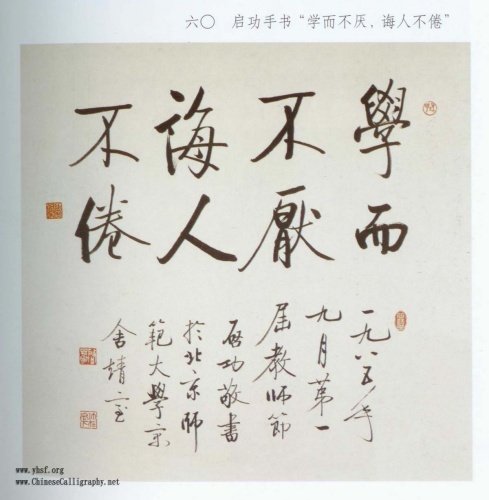 六〇 启功手书“学而不厌，诲人不倦”
學而
不厭
誨人
不倦
一九八五年
九月第一
屆教師節
啓功敬書
於北京師
範大學
舍
www.yhsf.org
www.ChineseCalligraphy.net